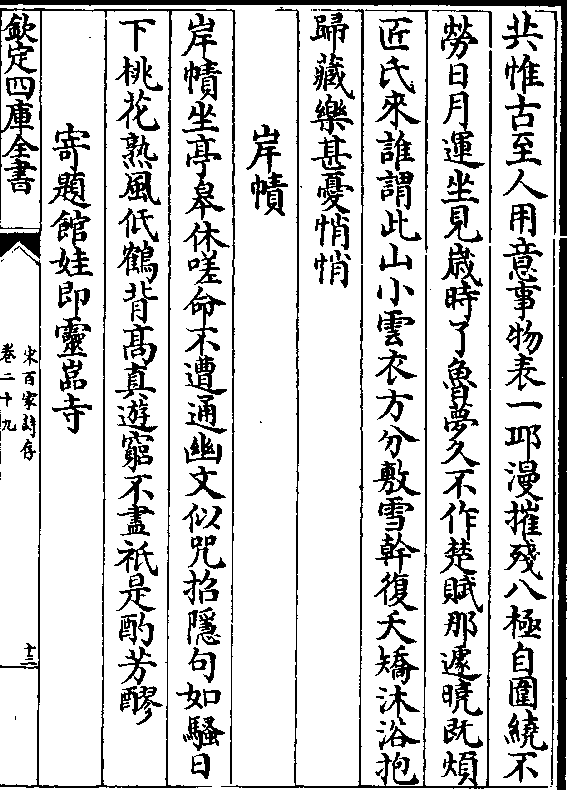 共惟古至人用意事物表一邱漫摧殘八極自圍繞不
勞日月運坐見歲時了魯夢久不作楚賦那遽曉既煩
匠氏來誰謂此山小雲衣方分敷雪幹復夭矯沐浴抱
歸藏樂甚憂悄悄
岸幘
岸幘坐亭皋休嗟命不遭通幽文似咒招隱句如騷日
下桃花熟風低鶴背高真遊窮不盡祇是酌芳醪
寄題館娃即靈嵓寺
欽定四庫全書
宋百家詩存
卷二十九
十三